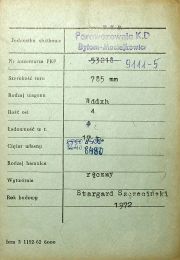 P K P
Jednostka służbowa Parowozownia K.D
Bytom-Maciejkowice
Nr inwentarza PKP 53018 9111-5
Szerokość toru 785 mm
Rodzaj wagonu Wddzh
Ilość osi 4
Ładowność w t.
Ciężar własny 8480
Rodzaj hamulca ręczny
Wytwórnia Stargard Szczeciński
Rok budowy 1972